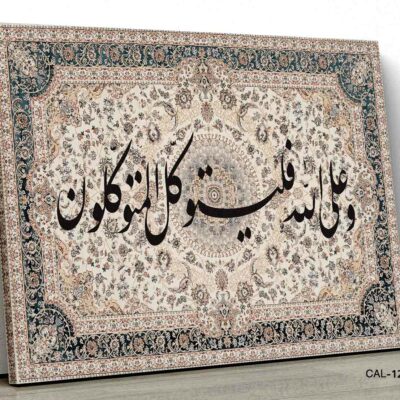 وعلى الله فليتوكل المتوكلون
CAL-12